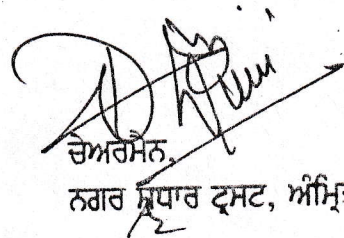 ਚੇਅਰਮੈਨ,
ਨਗਰ ਸੁਧਾਰ ਟ੍ਰਸਟ, ਅੰਮ੍ਰਿ